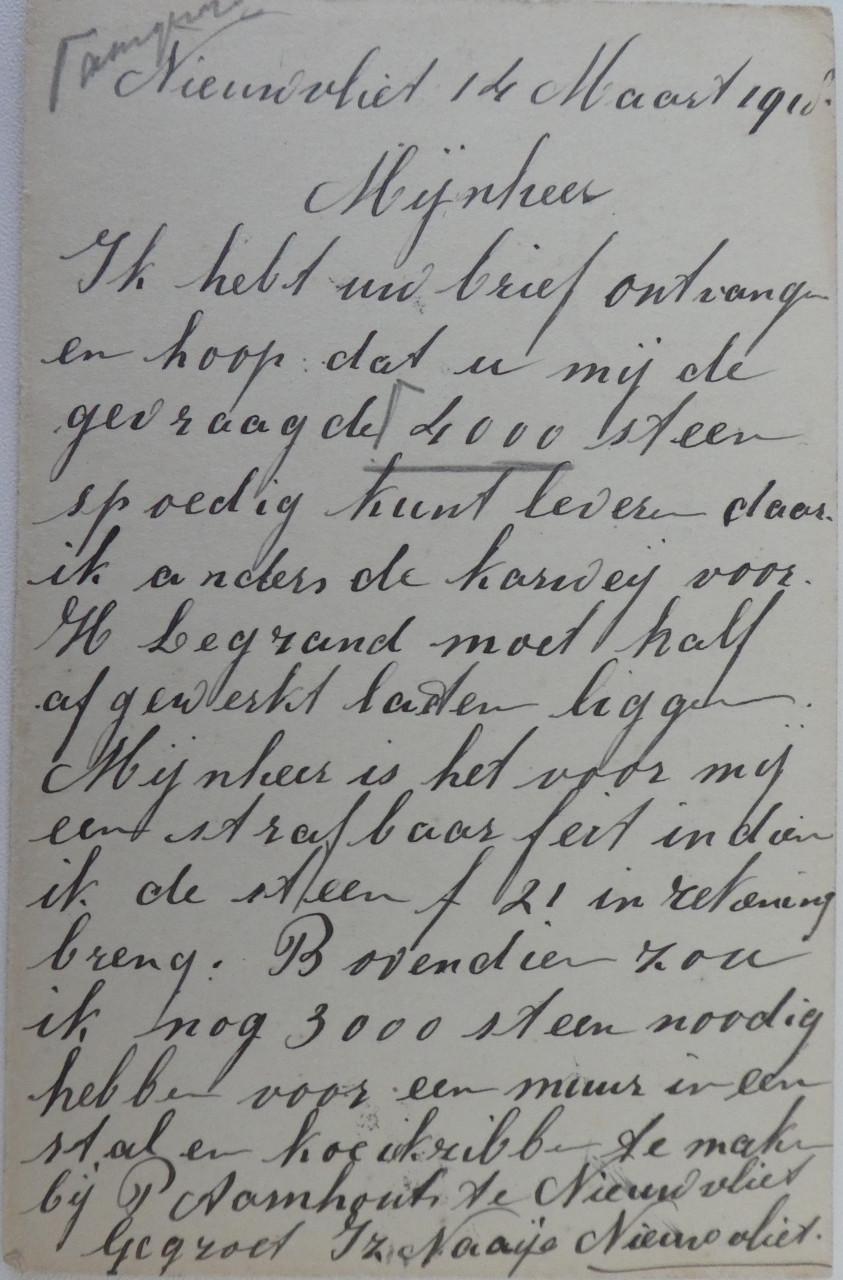 Nieuwvliet 14 Maart 1918.
Mijnheer
Ik hebt uw brief ontvangen
en hoop dat u mij de
gevraagde 4000 steen
spoedig kunt leveren daar
ik anders de karweij voor
H Legrand moet half
afgewerkt laten liggen.
Mijnheer is het voor mij
een strafbaar feit indien
ik de steen f 21 in rekening
breng. Bovendien zou
ik nog 3000 steen noodig
hebben voor een muur in een
stal en koeikribben te maken
bij P Aarnhouts te Nieuwvliet
Gegroet Iz Naaije Nieuwvliet.